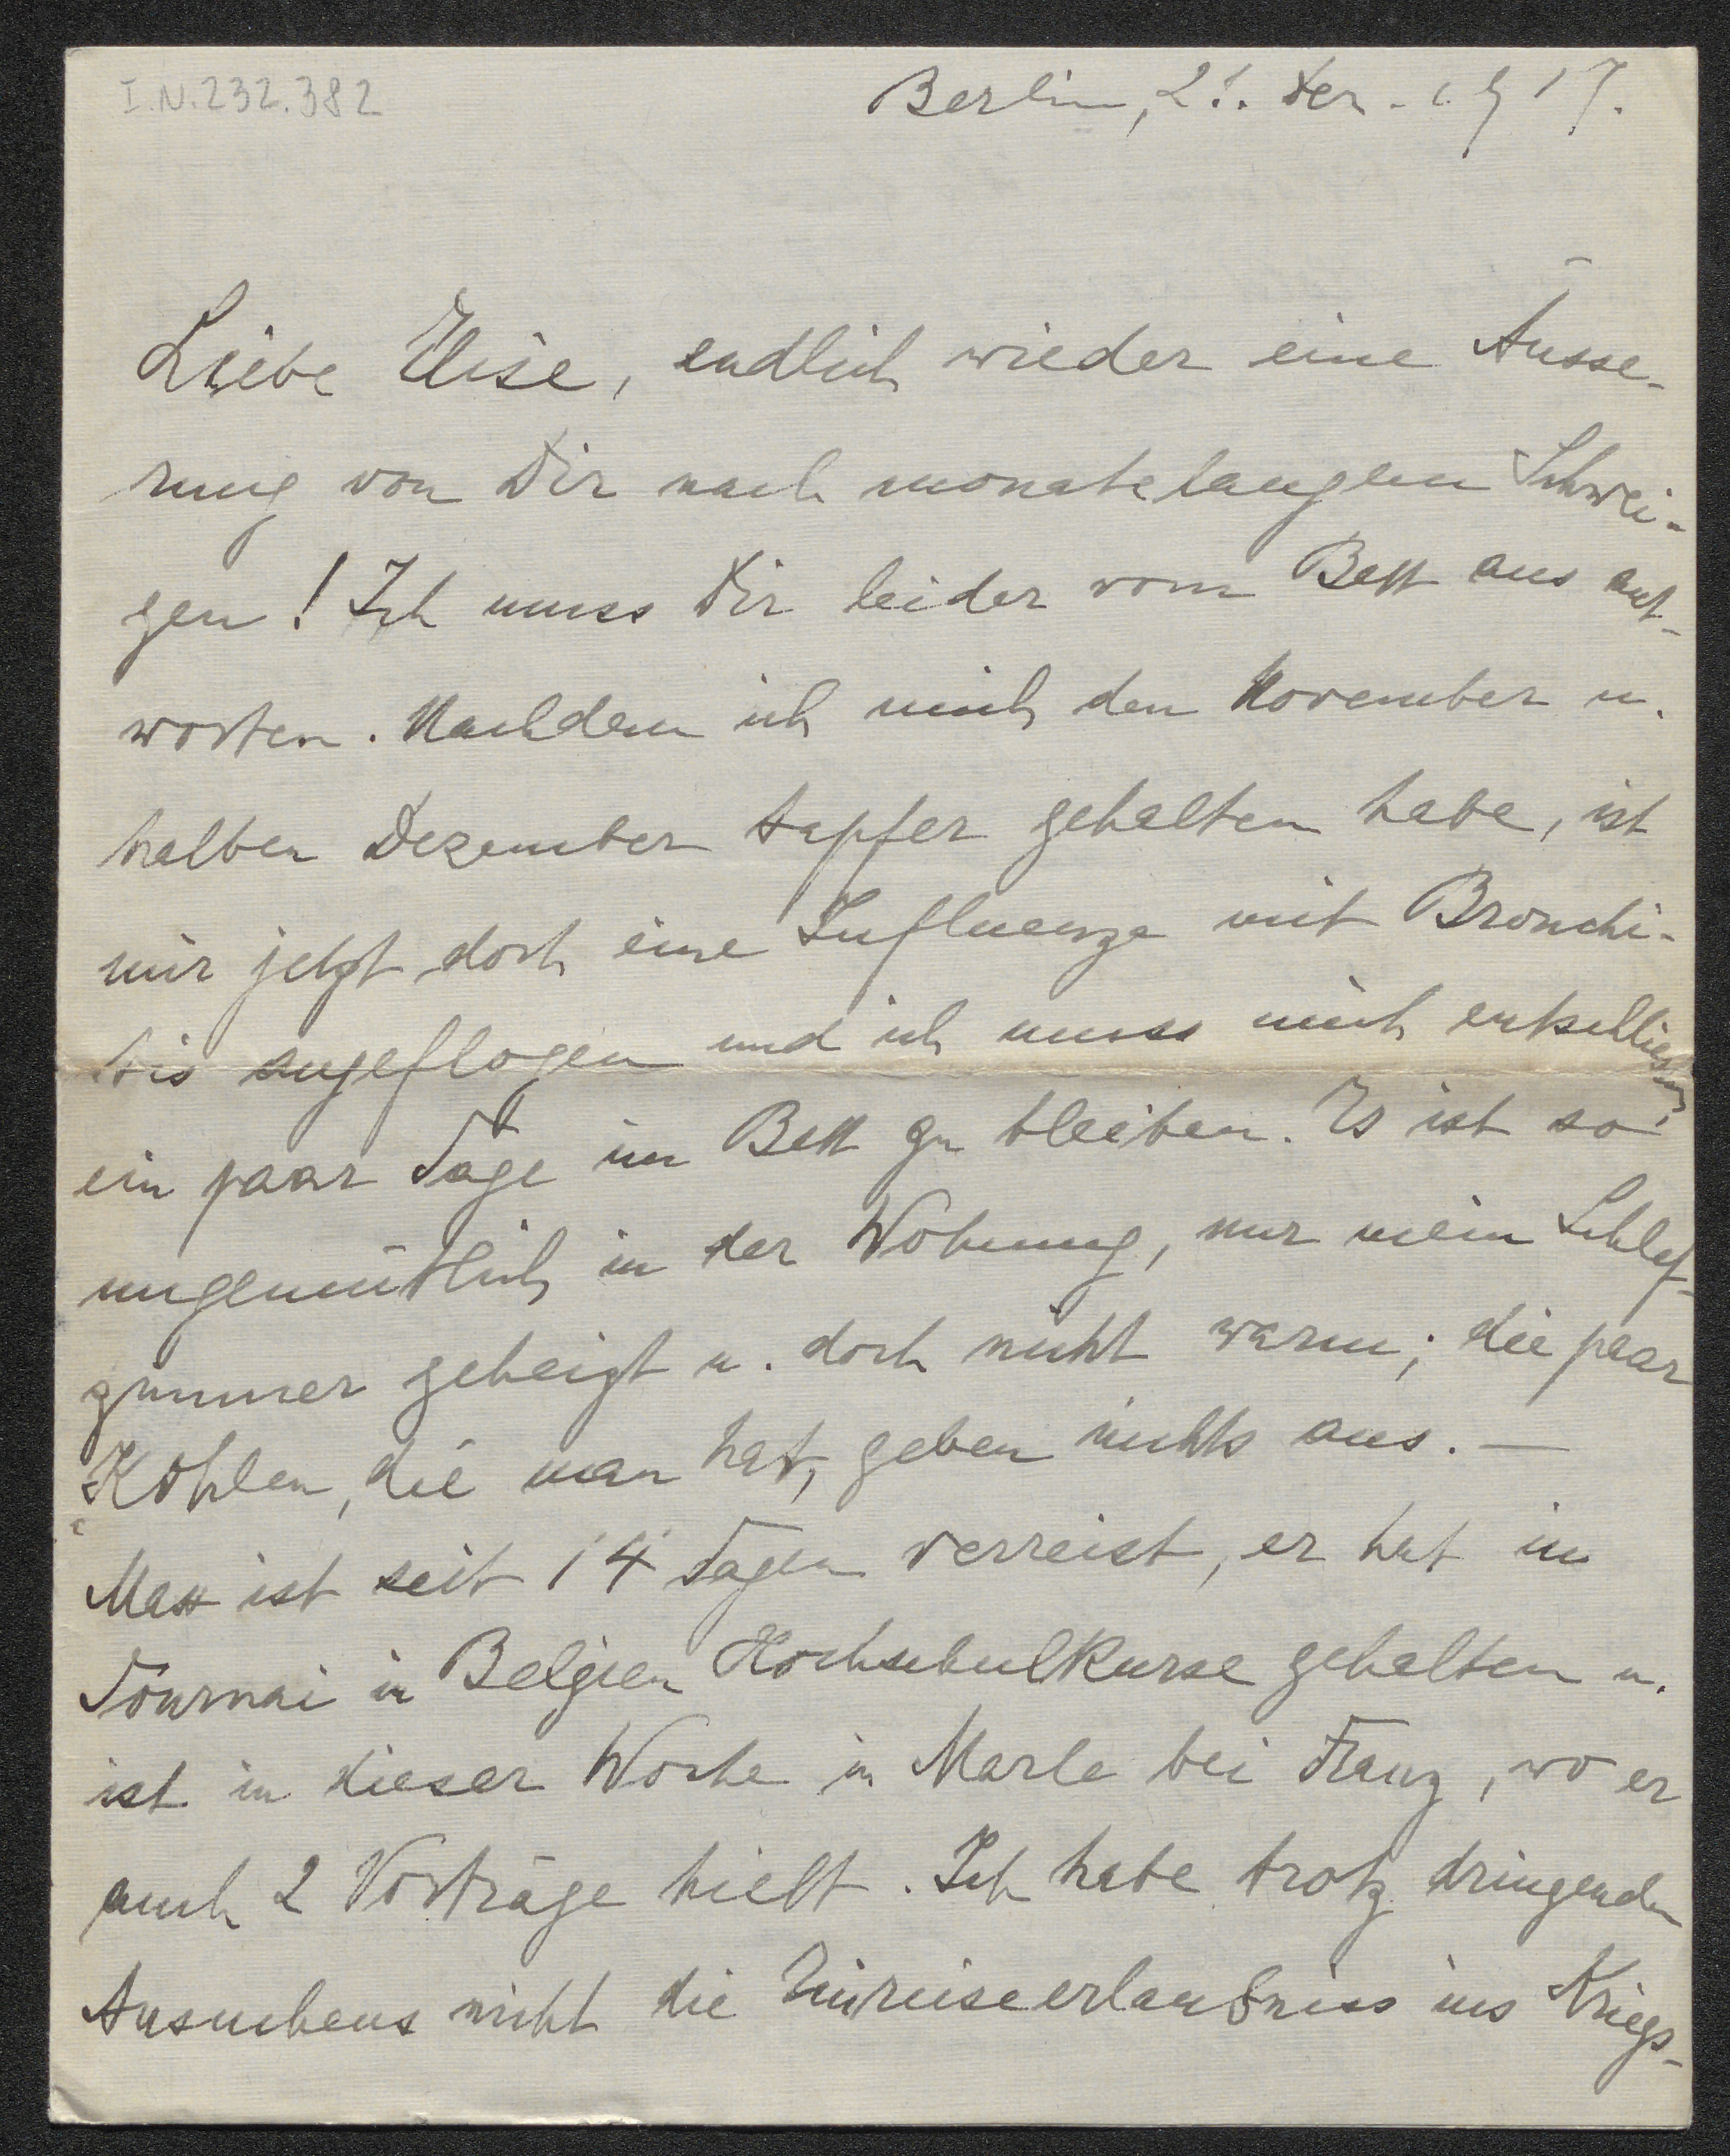 I.N.232.382
Berlin, 21. Dez. 1917.
Liebe Elise, endlich wieder eine Äusse-
rung von Dir nach monatelangem Schwei-
gen! Ich muss Dir leider vom Bett aus ant-
worten. Nachdem ich mich den November u.
halben Dezember tapfer gehalten habe, ist
mir jetzt doch eine Influenza mit Bronchi-
tis angeflogen und ich muss mich entschliessen,
ein paar Tage im Bett zu bleiben. Es ist so
ungemütlich in der Wohnung, nur mein Schlaf-
zimmer geheizt u. doch nicht warm; die paar
Kohlen, die man hat, geben nichts aus. —
Max ist seit 14 Tagen verreist, er hat in
Tournai in Belgien Hochschulkurse gehalten u.
ist in dieser Woche in Marle bei Franz, wo er
auch 2 Vorträge hielt. Ich habe trotz dringenden
Ansuchens nicht die Einreiseerlaubniss ins Kriegs-